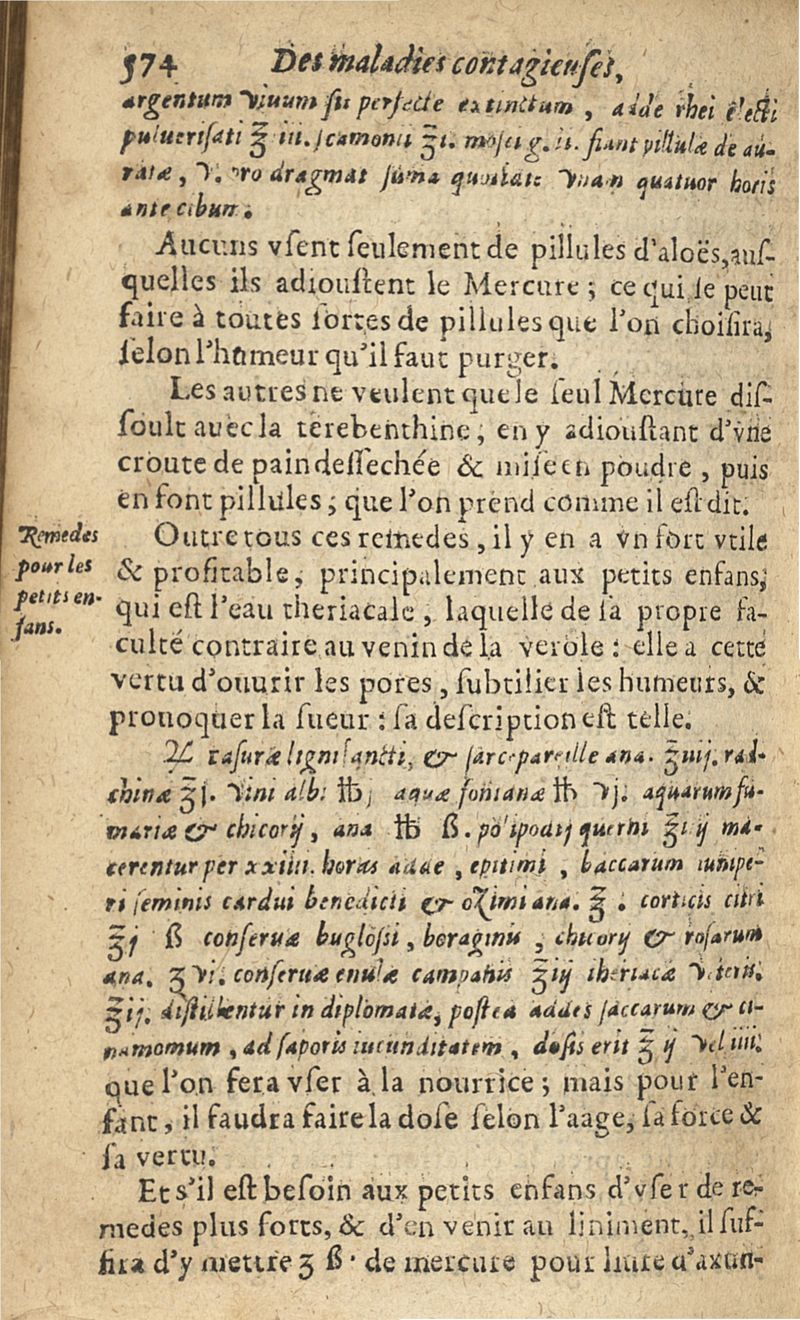 574 Des maladies contagieuses,
argentum viuum sit perfecte extinctum, adde rhei electi
puluerisati ℥ iii. scamonii ℥i. mosci g. ii. fiant pillulæ de au-
ratæ, v. pro dragmat quatuor horis
ante cibum.
Aucuns vsent seulement de pillules d'aloës, aus-
quelles ils adioustent le Mercure; ce qui se peut
faire à toutes sortes de pillules que l'on choisira,
selon l'humeur qu'il faut purger.
Les autres ne veulent que le seul Mercure dis-
soult auec la terebenthine, en y adioustant d'vne
croute de pain dessechée & mise en poudre, puis
en font pillules, que l'on prend comme il est dit.
Remedes
pour les
petits en-
fans.
Outre tous ces remedes, il y en a vn fort vtile
& profitable, principalement aux petits enfans,
qui est l'eau theriacale, laquelle de sa propre fa-
culté contraire au venin de la verole: elle a cette
vertu d'ouurir les pores, subtilier les humeurs, &
prouoquer la sueur: sa description est telle.
℞ rasuræ ligni sancti, & sarcepareille ana. ℥iiij. rad.
chinæ ℥j. vini albi ℔j aquæ fontanæ ℔ vj. aquarum fu-
mariæ & chicorij, ana ℔ ß. polipodij querni ℥ij ma-
cerentur per xxiiii. horas adde, epitimi, baccarum iunipe-
ri seminis cardui benedicti & ozimi ana. ℥. corticis citri
℥j ß conseruæ buglossi, boraginis, chicorij & rosarum
ana. ʒvi. conseruæ enulæ campanis ℥iij theriacæ veteris.
℥ij. distillentur in diplomatæ, postea addes saccarum & ci-
namomum, ad saporis iucunditatem, dosis erit ℥ ij vel iiii.
que l'on fera vser à la nourrice; mais pour l'en-
fant, il faudra faire la dose selon l'aage, sa force &
sa vertu.
Et s'il est besoin aux petits enfans d'vser de re-
medes plus forts, & d'en venir au liniment, il suf-
fira d'y mettre ʒ ß. de mercure pour liure d'axun-